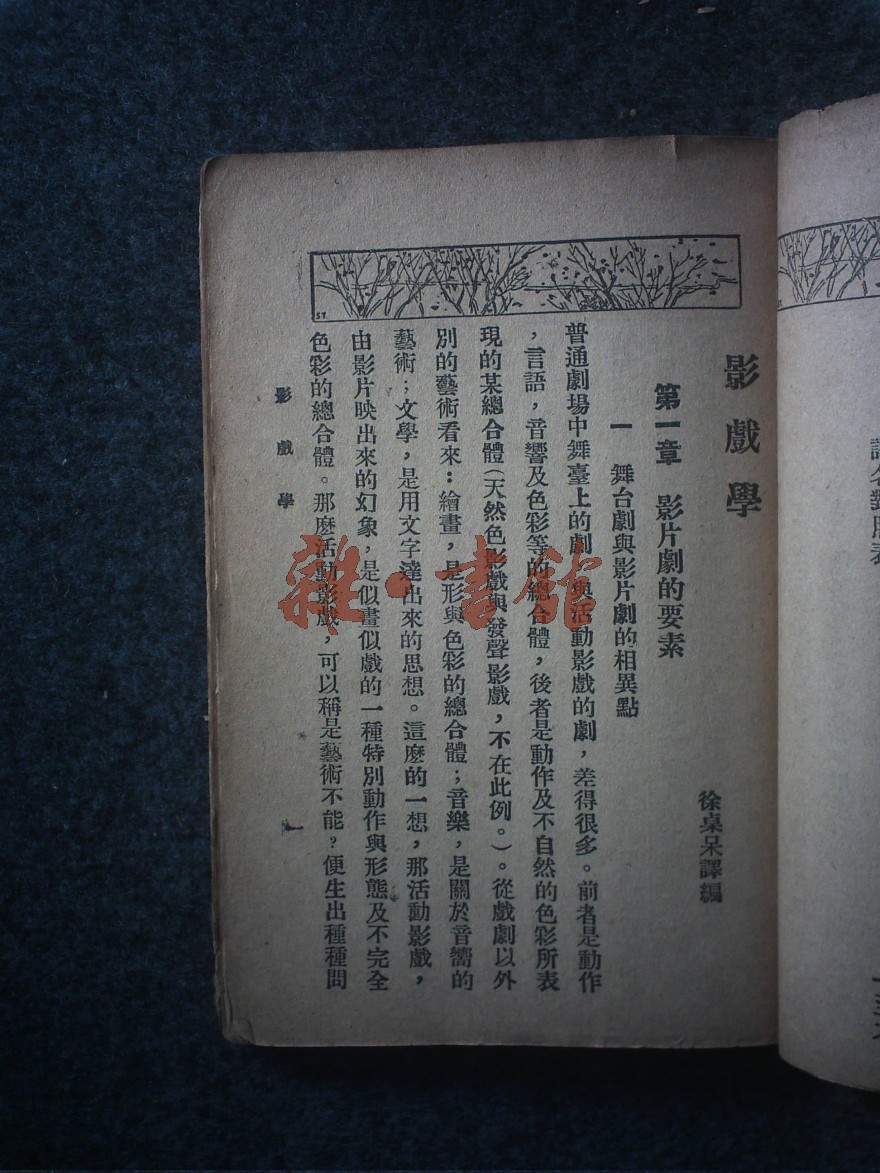 影戲學
徐桌呆譯編
第一章 影片劇的要素
一 舞台劇與影片劇的相異點
普通劇場中舞臺上的劇，與活動影戲的劇，差得很多。前者是動作
，言語，音響及色彩等的總合體，後者是動作及不自然的色彩所表
現的某總合體(天然色影戲與發聲影戲，不在此例。)。從戲劇以外
別的藝術看來：繪畫，是形與色彩的總合體；音樂，是關於音嚮的
藝術；文學，是用文字達出來的思想。這麽的一想，那活動影戲，
由影片映出來的幻象，是似畫似戲的一種特別動作與形態及不完全
色彩的總合體。那麽活動影戲，可以稱是藝術不能？便生出種種問
影戲學
一
ST
雜·書館